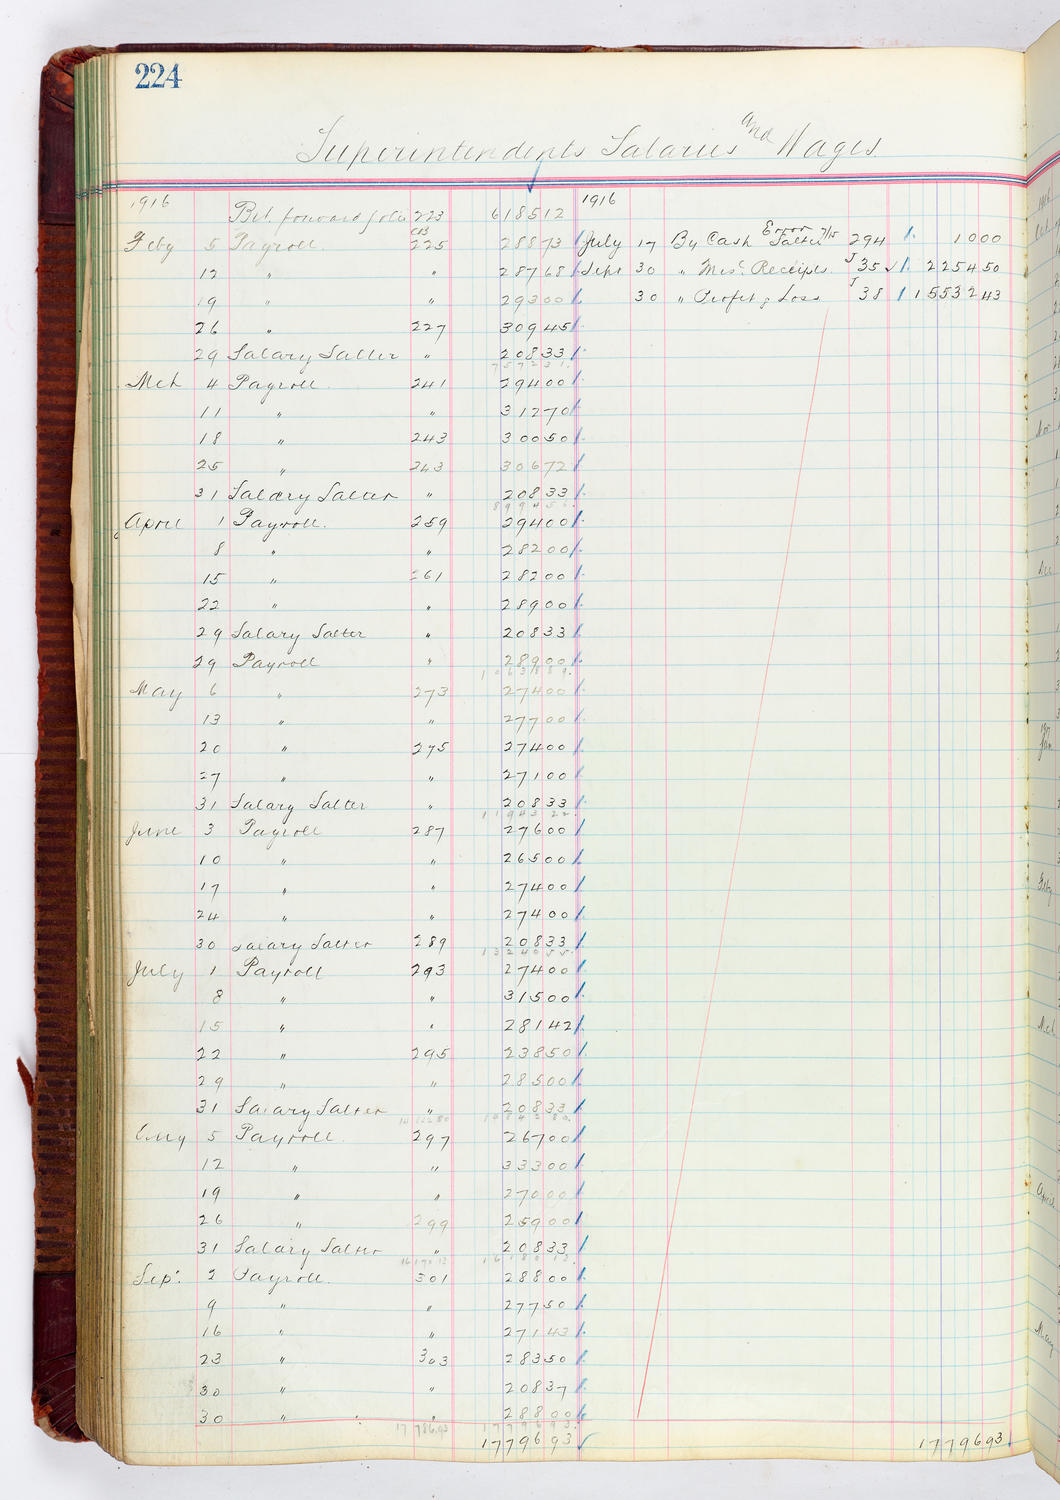 224
Superintendents Salaries and Wages.
1916 1916
Bal. forward folio 223 618512
CB
Feby 5 Payroll. 225 28873 July 17 By Cash Error Salter 7/15 294 1000
12 " " 28768 Sept 30 " Mis. Receipts J 35 225450
19 " " 29300 30 " Profit & Loss J 38 1553243
26 " 227 30945
29 Salary Salter " 20833
757231.
Mch 4 Payroll. 241 29400
11 " " 31270
18 " 243 30050
25 " 243 30672
31 Salary Salter " 20833
April 1 Payroll. 259 29400
8 " " 28200
15 " 261 28200
22 " " 28900
29 Salary Salter " 20833
29 Payroll " 28900
May 6 " 273 27400
13 " " 27700
20 " 275 27400
27 " " 27100
31 Salary Salter " 20833
11943 22.
June 3 Payroll 287 27600
10 " " 26500
17 " " 27400
24 " " 27400
30 Salary Salter 289 20833
1324055.
July 1 Payroll 293 27400
8 " " 31500
15 " " 28142
22 " 295 23850
29 " " 28500
31 Salary Salter " 20833
1484280.
Aug 5 Payroll. 297 26700
12 " " 33300
19 " " 27000
26 " 299 25900
31 Salary Salter " 20833
Sep. 2 Payroll. 301 28800
9 " " 27750
16 " " 27143
23 " 303 28350
30 " " 20837
30 " " " 28800
17 786.93 1779693.
1779693 1779693